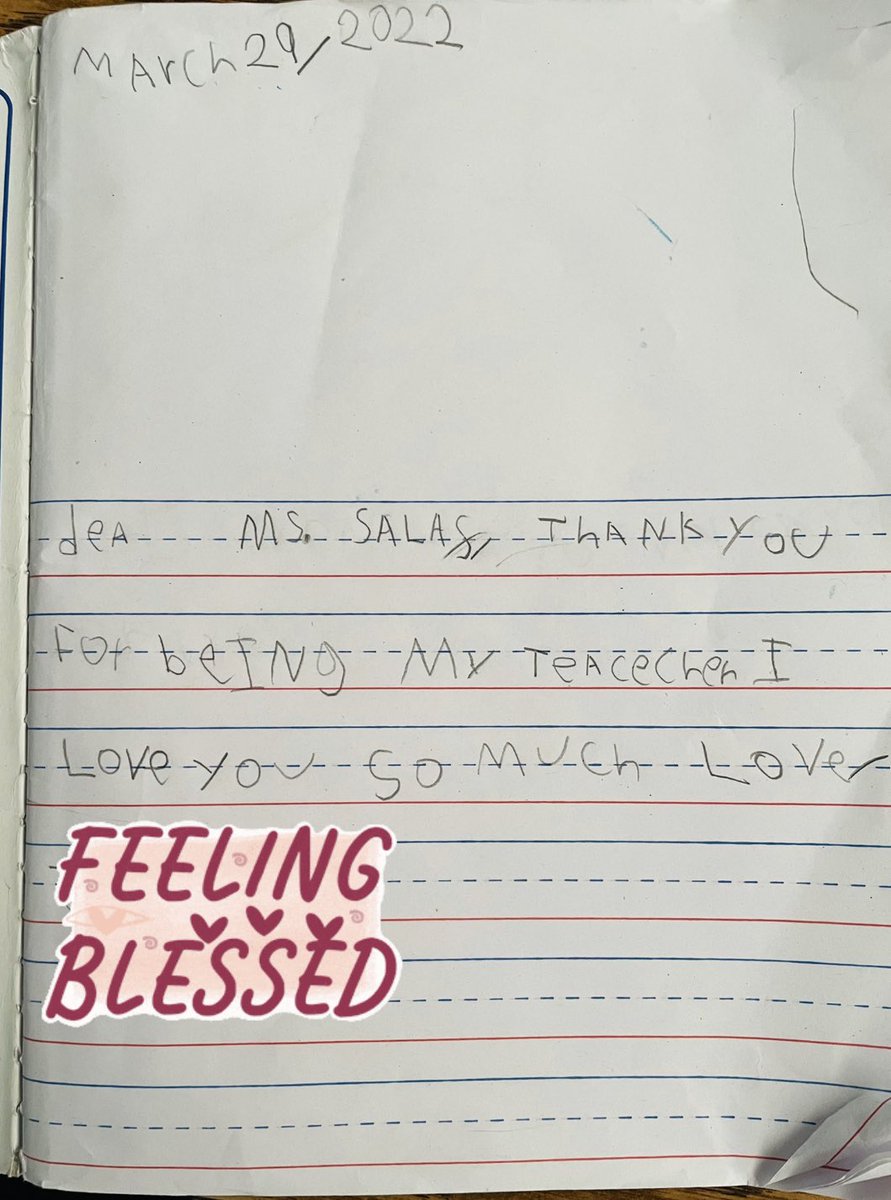 MArch 29/2022
deA Ms. SALAS, ThANK YOU
For beING My TeAceCher I
Love you So MUCh Love,
FEELING
BLESSED